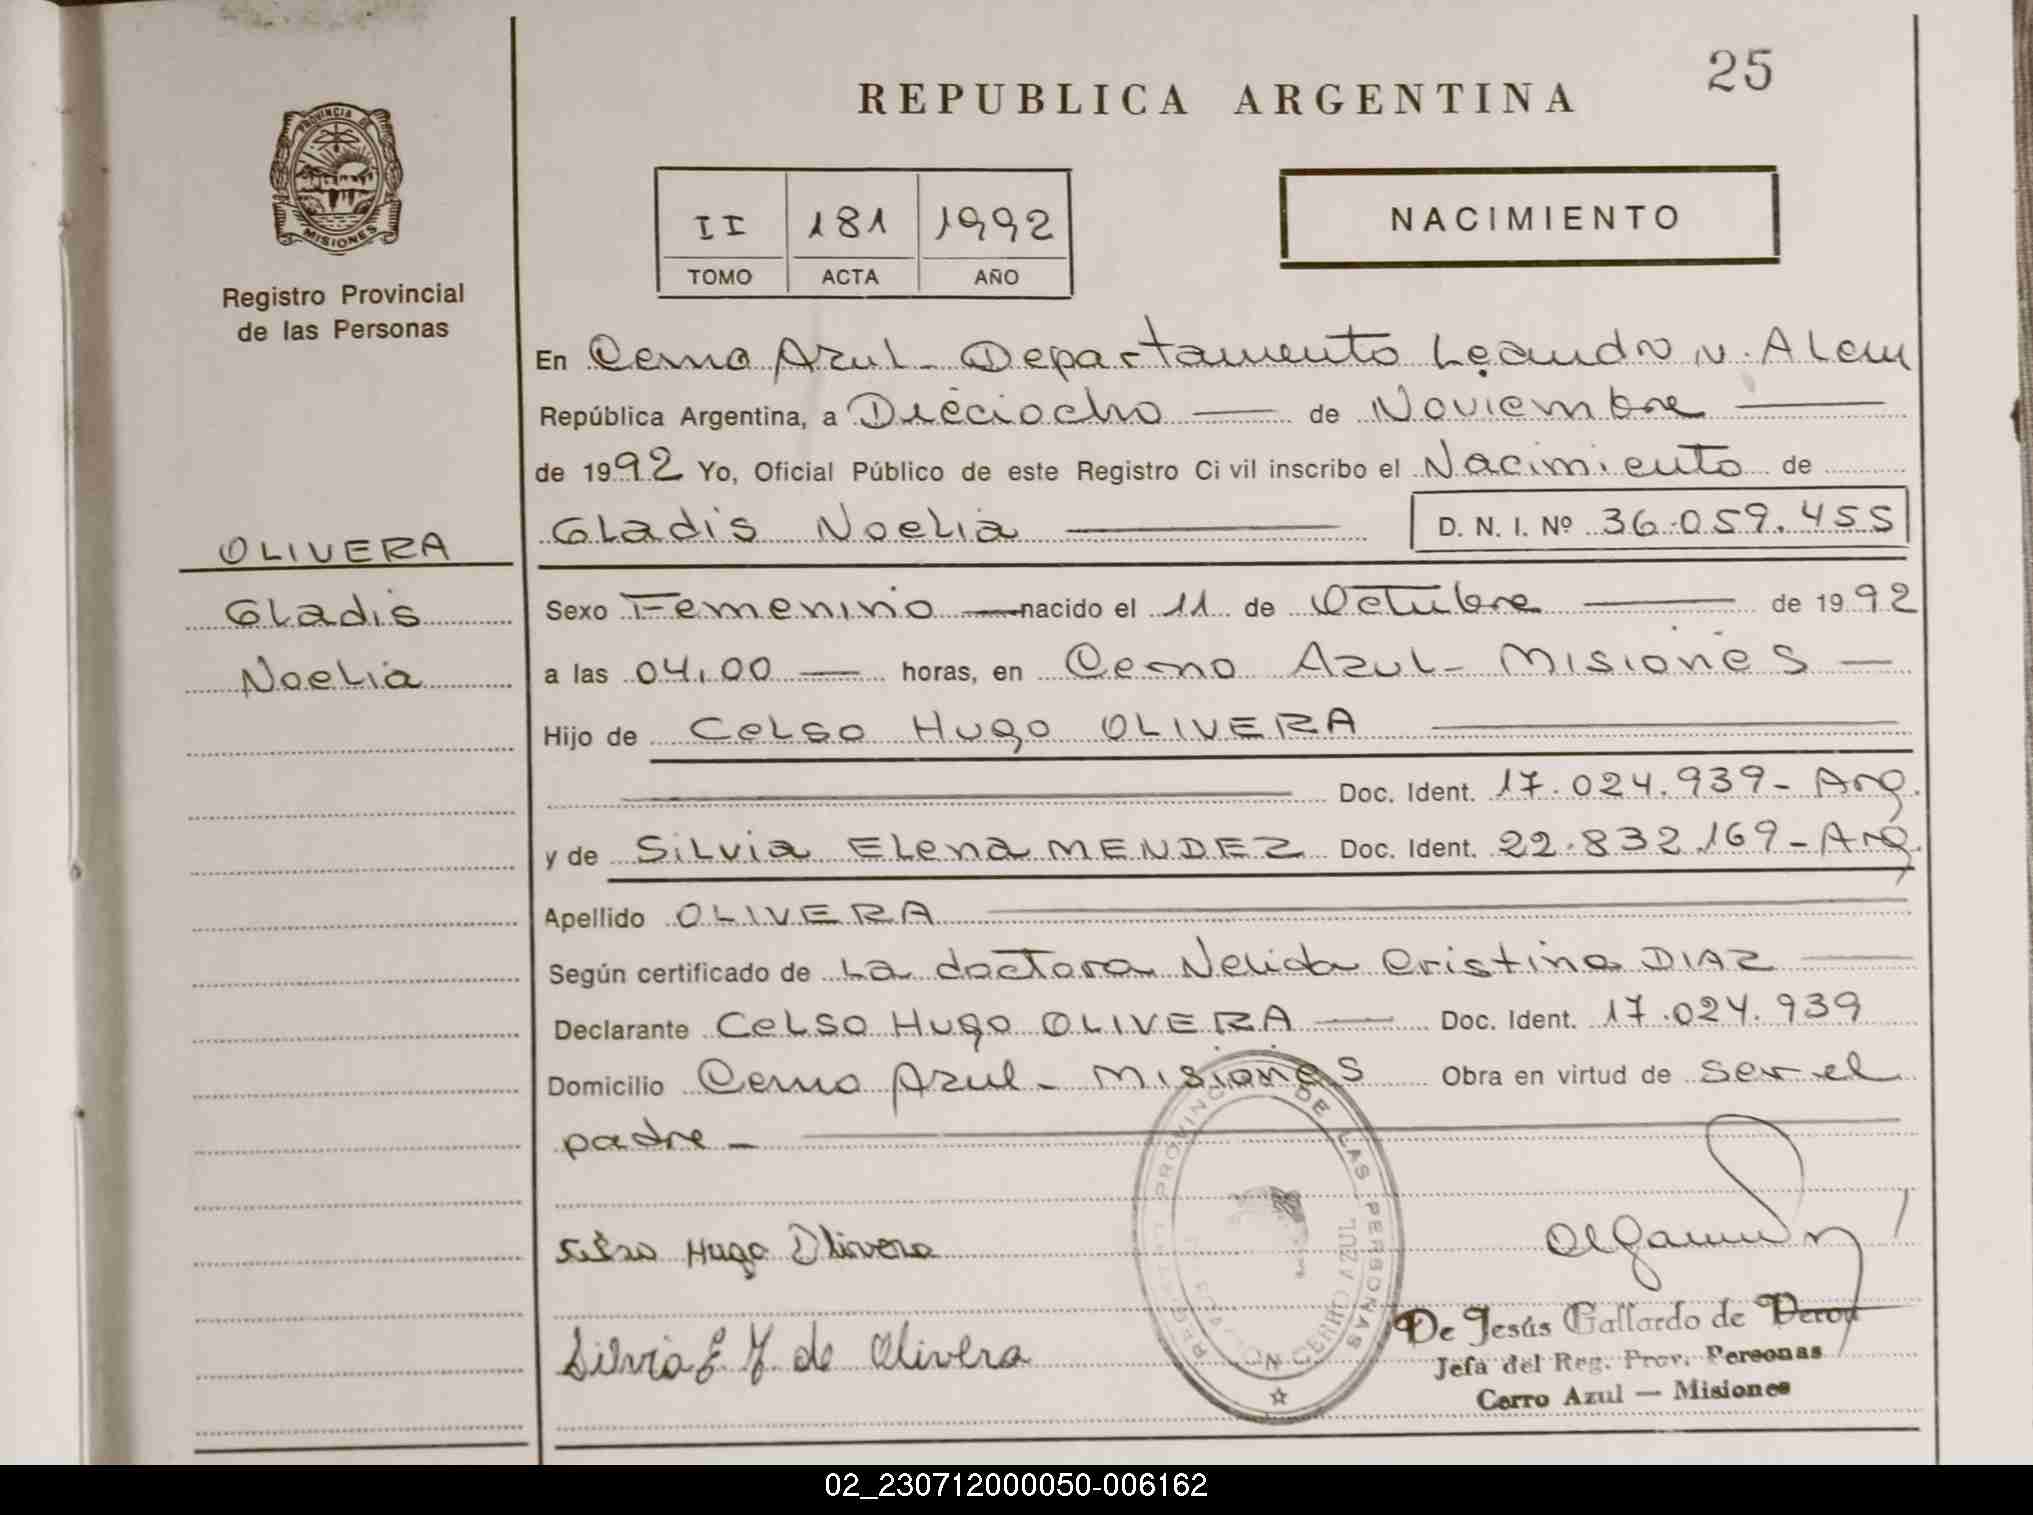 25
REPUBLICA ARGENTINA
PROVINCIA DE
MISIONES
Registro Provincial
de las Personas
II 181 1992
TOMO ACTA AÑO
NACIMIENTO
En Cerro Azul - Departamento Leandro N. Alem
República Argentina, a Dieciocho — de Noviembre —
de 1992 Yo, Oficial Público de este Registro Civil inscribo el Nacimiento de
Gladis Noelia — D. N. I. Nº 36.059.455
OLIVERA
Gladis
Noelia
Sexo Femenino — nacido el 11 de Octubre — de 1992
a las 04,00 — horas, en Cerro Azul - Misiones —
Hijo de Celso Hugo OLIVERA —
— Doc. Ident. 17.024.939 - Arg.
y de Silvia Elena MENDEZ Doc. Ident. 22.832.169 - Arg.
Apellido OLIVERA —
Según certificado de La doctora Nelida Cristina DIAZ —
Declarante Celso Hugo OLIVERA — Doc. Ident. 17.024.939
Domicilio Cerro Azul - Misiones Obra en virtud de ser el
padre - —
Hugo Olivera
Silvia E de Olivera
DE LAS PERSONAS
CERRO AZUL
De Jesús Gallardo de
Jefa del Reg. Prov. Personas
Cerro Azul — Misiones
02_230712000050-006162